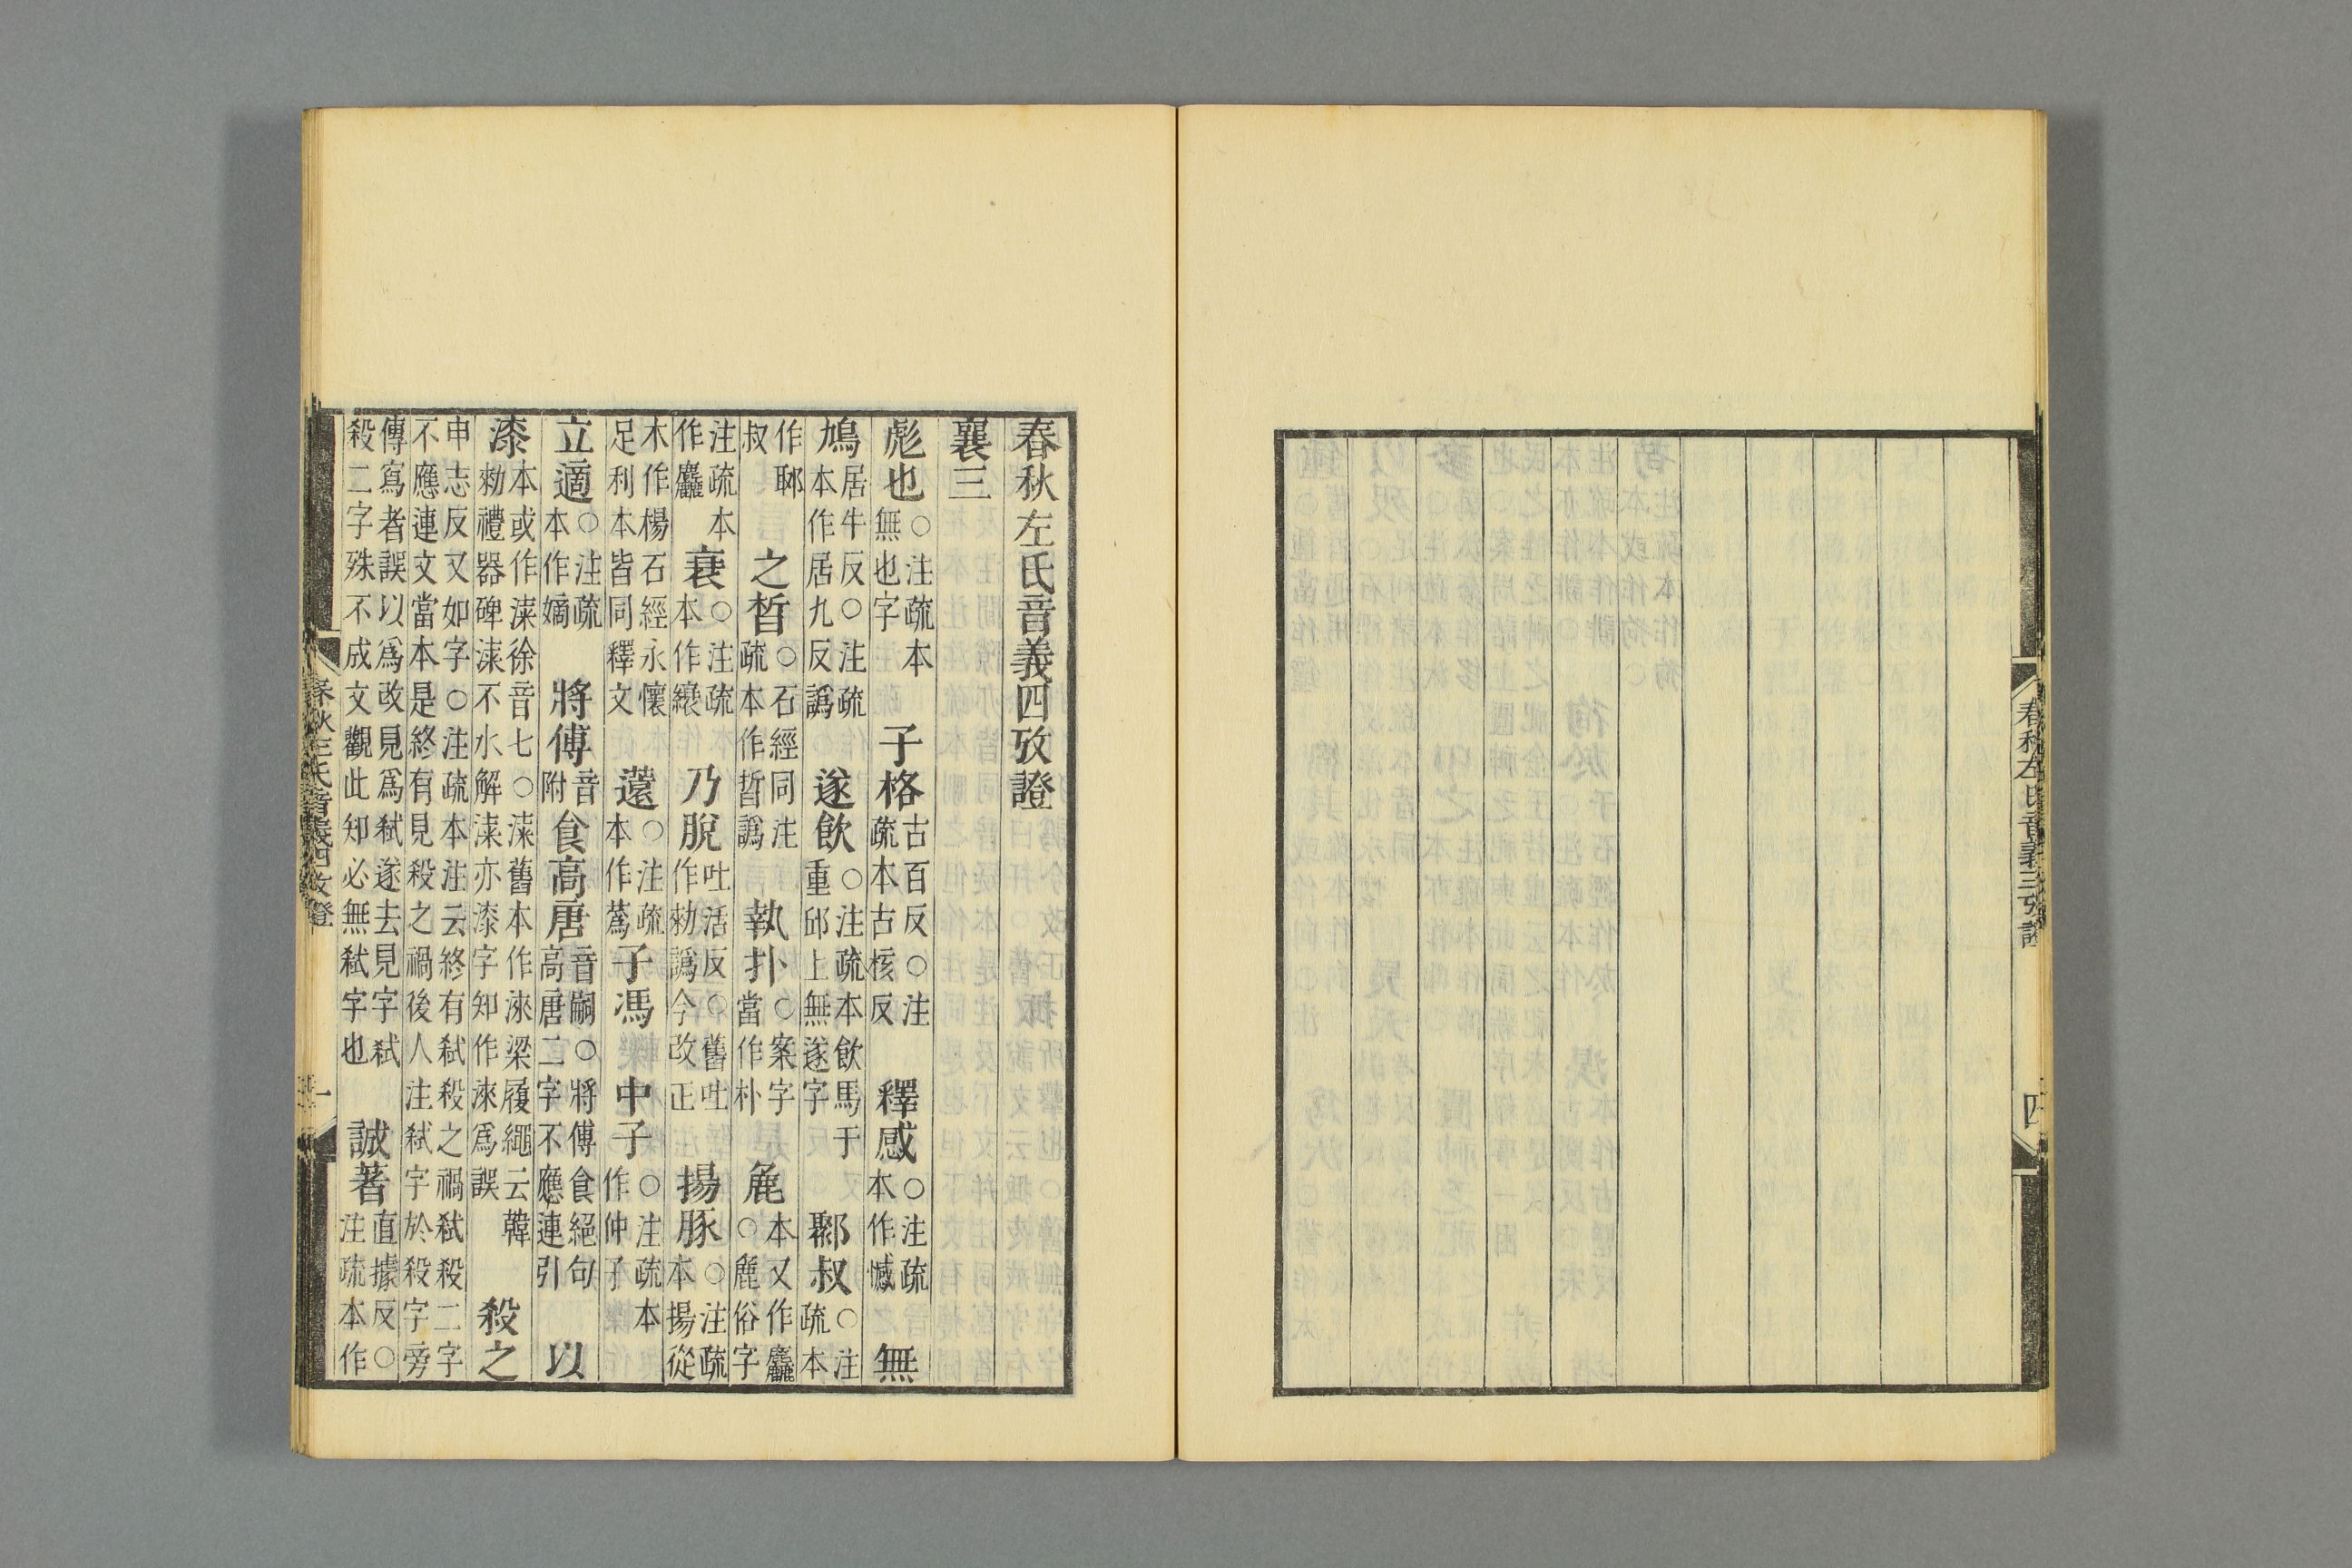 春秋左氏音義三攷證
四
春秋左氏音義四攷證
襄三
彪也○注疏本無也字　子格古百反○注疏本古核反　釋感○注疏本作憾　無
鳩居牛反○注疏本作居九反譌　遂飲○注疏本飲馬于重邱上無遂字　鄹叔○注疏本
作郰叔　之晳○石經同注疏本作晢譌　執扑○案字當作朴　麁本又作麤○麄俗字
注疏本作麤　衰○注疏本作縗　乃脫吐活反○舊吐作勑譌今改正　揚豚○注疏本揚從
木作楊石經永懷足利本皆同釋文　薳○注疏本作蒍子馮　中子○注疏本作仲子
立適○注疏本作嫡　將傅音附食高唐音嗣○將傅食絕句高唐二字不應連引　以
漆本或作涑徐音七○涑舊本作淶梁履繩云韓勑禮器碑涑不水解涑亦漆字知作淶爲誤　殺之
申志反又如字○注疏本注云終有弒殺之禍弒殺二字不應連文當本是終有見殺之禍後人注弒字於殺字旁
傳寫者誤以爲改見爲弒遂去見字弒殺二字殊不成文觀此知必無弒字也　誠著直據反○注疏本作
春秋左氏音義四攷證
一